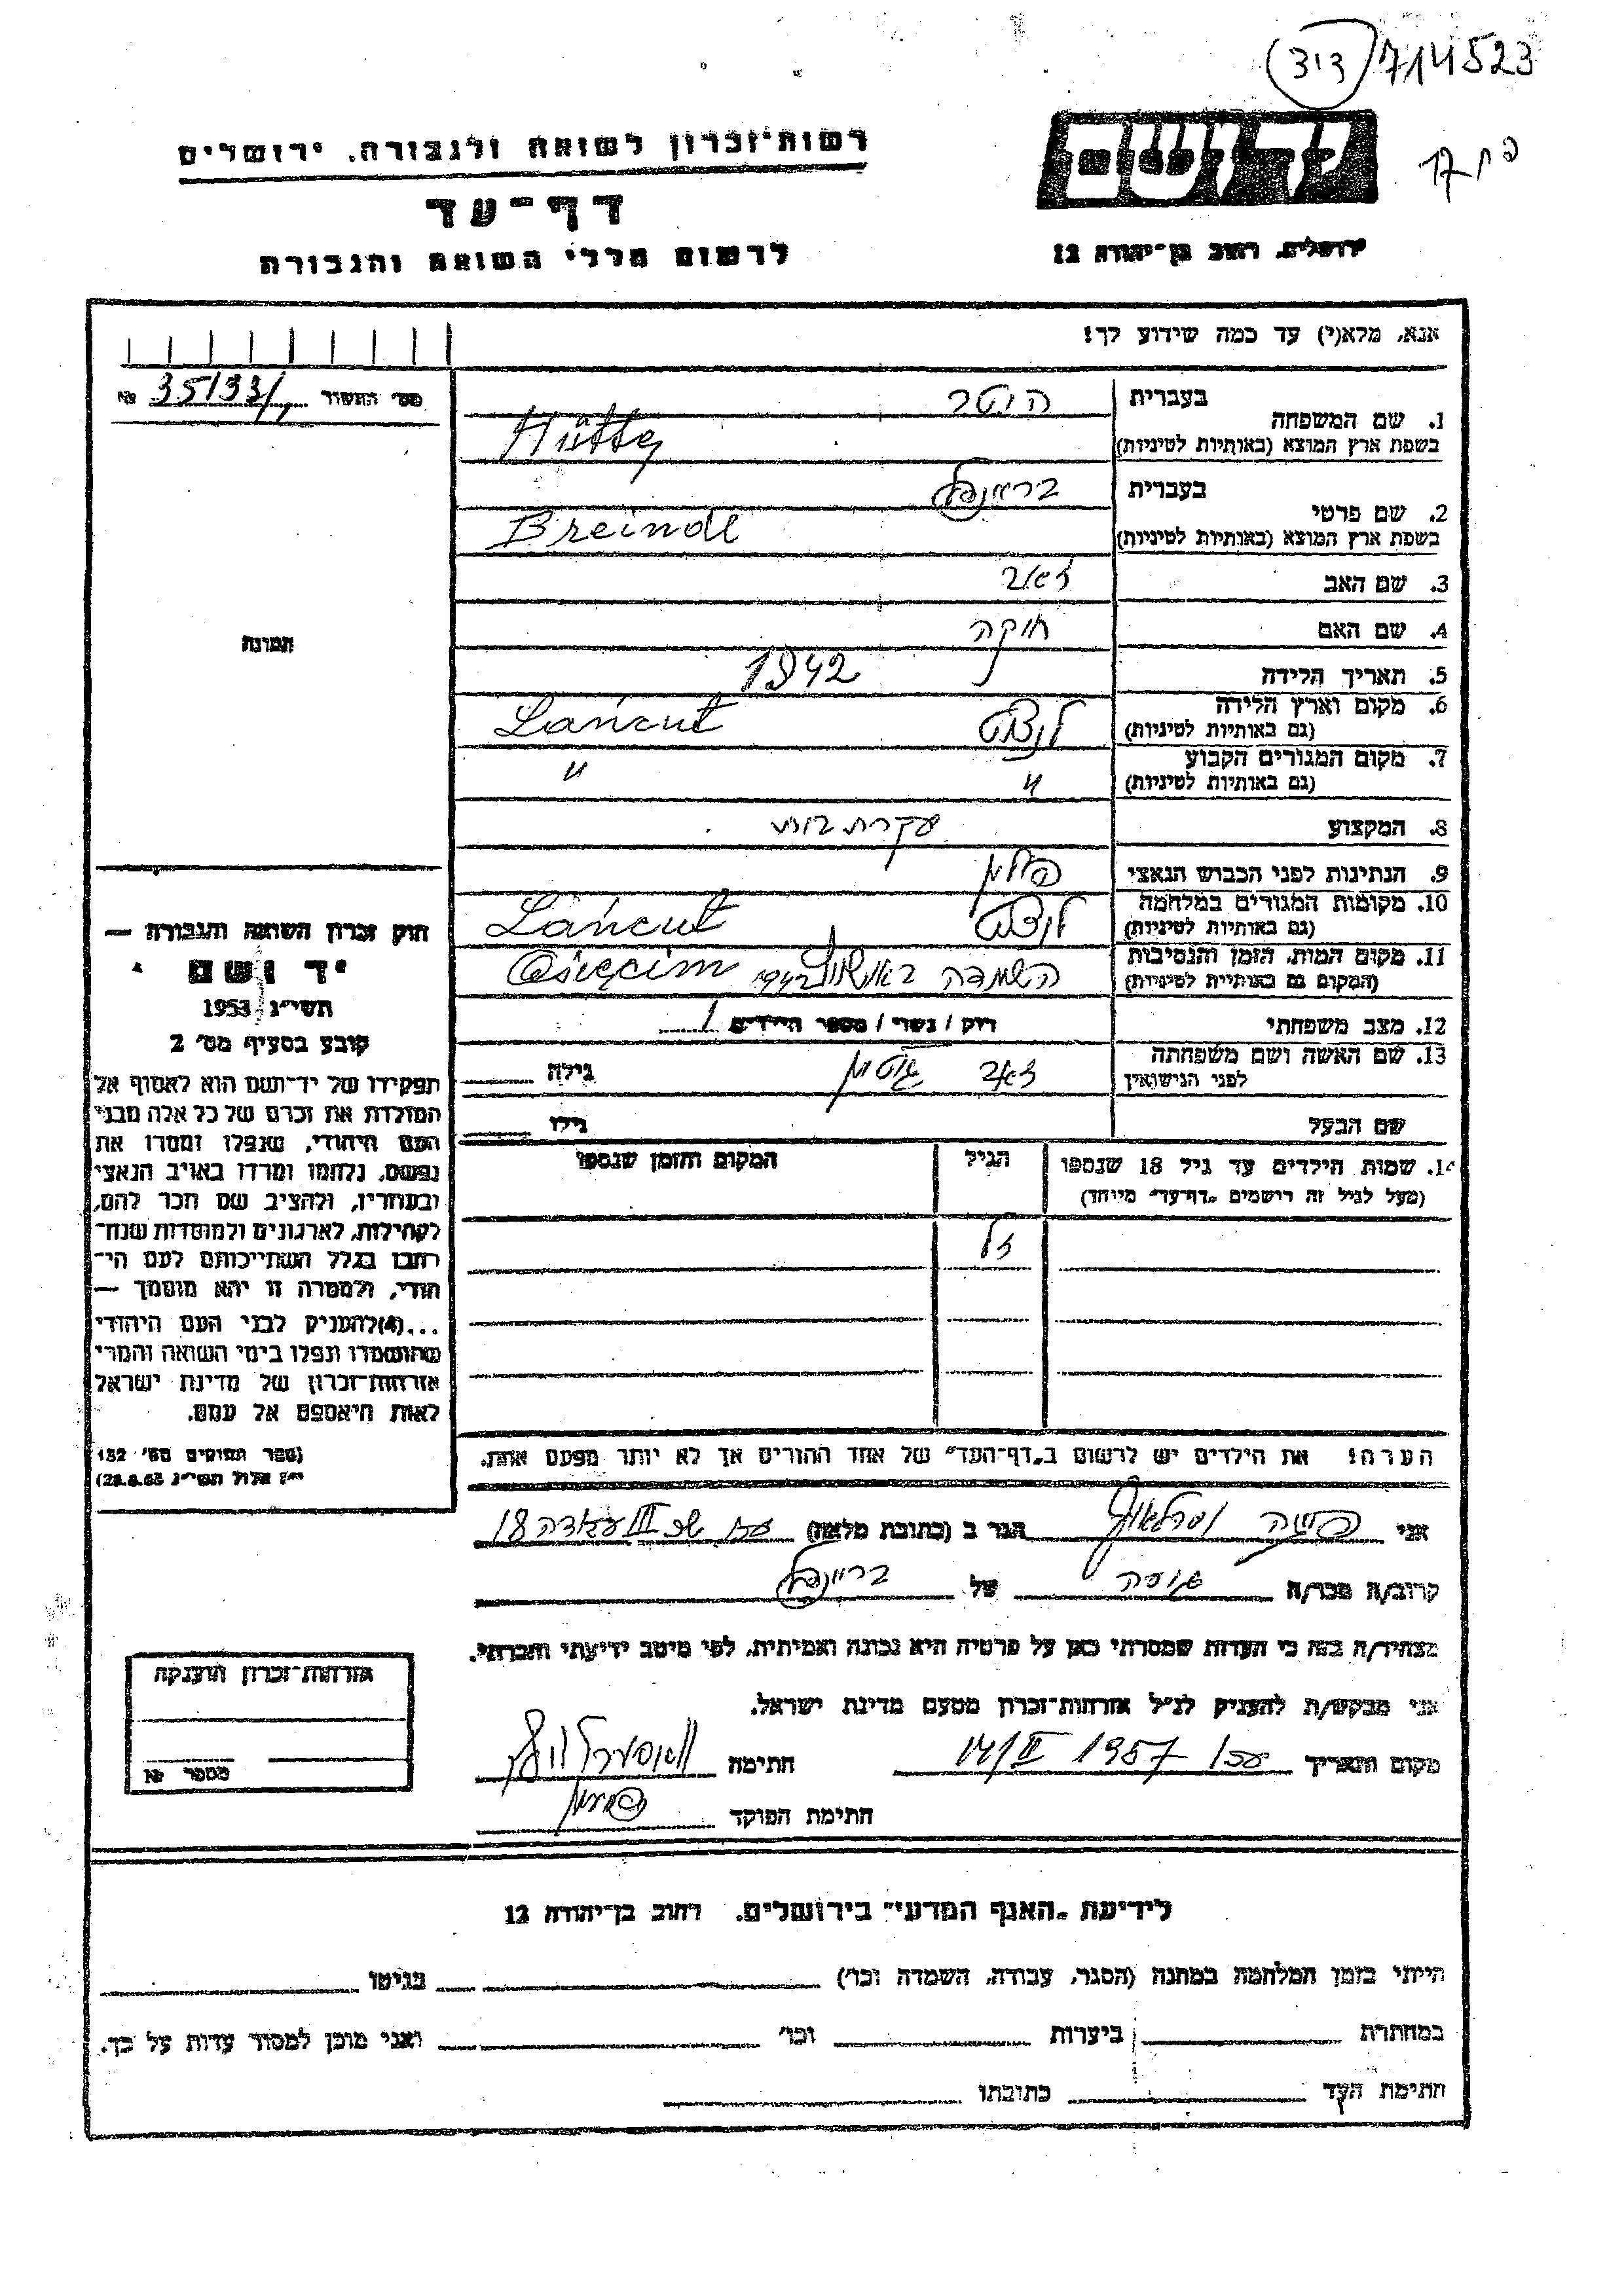 (313) 714523
רשות־זכרון לשואה ולגבורה, ירושלים
יד ושם
דף־עד
לרשום חללי השואה והגבורה
ירושלים, רחוב בן־יהודה 12
אנא, מלא(י) עד כמה שידוע לך!
מס׳ האשור № 35/33/
1. שם המשפחה בעברית הוטר
בשפת ארץ המוצא (באותיות לטיניות) Hütte
2. שם פרטי בעברית בריינדל
בשפת ארץ המוצא (באותיות לטיניות) Breindl
3. שם האב זאב
4. שם האם
5. תאריך הלידה 1942
6. מקום וארץ הלידה (גם באותיות לטיניות) לנצט Lańcut
7. מקום המגורים הקבוע (גם באותיות לטיניות) " "
8. המקצוע עקרת בית
9. הנתינות לפני הכבוש הנאצי פולין
10. מקומות המגורים במלחמה (גם באותיות לטיניות) לנצט Lańcut
11. מקום המות, הזמן והנסיבות (המקום גם באותיות לטיניות) השמדה 1942
12. מצב משפחתי רוק / נשוי / מספר הילדים 1
13. שם האשה ושם משפחתה לפני הנישואין זאב גילה
שם הבעל גילו
14. שמות הילדים עד גיל 18 שנספו הגיל המקום והזמן שנספו
(מעל לגיל זה רושמים „דף־עד״ מיוחד)
תמונה
חוק זכרון השואה והגבורה —
יד ושם
תשי״ג 1953
קובע בסעיף מס׳ 2
תפקידו של יד־ושם הוא לאסוף אל
המולדת את זכרם של כל אלה מבני
העם היהודי, שנפלו ומסרו את
נפשם, נלחמו ומרדו באויב הנאצי
ובעוזריו, ולהציב שם וזכר להם,
לקהילות, לארגונים ולמוסדות שנח־
רבו בגלל השתייכותם לעם הי־
הודי, ולמטרה זו יהא מוסמך —
...(4)להעניק לבני העם היהודי
שהושמדו ונפלו בימי השואה והמרי
אזרחות־זכרון של מדינת ישראל
לאות היאספם אל עמם.
(ספר החוקים מס׳ 132
י״ז אלול תשי״ג 28.8.53)
הערה! את הילדים יש לרשום ב„דף־העד״ של אחד ההורים אך לא יותר מפעם אחת.
אני הגר ב (כתובת מלאה) 18
קרוב/ה מכר/ה גיסה של בריינדל
מצהיר/ה בזה כי העדות שמסרתי כאן על פרטיה היא נכונה ואמיתית, לפי מיטב ידיעתי והכרתי.
אני מבקש/ת להעניק לנ״ל אזרחות־זכרון מטעם מדינת ישראל.
מקום ותאריך עכו 14/II 1957 חתימה
חתימת הפוקד
אזרחות־זכרון הוענקה
מספר №
לידיעת „האגף המדעי״ בירושלים, רחוב בן־יהודה 12
הייתי בזמן המלחמה במחנה (הסגר, עבודה, השמדה וכו׳) בגיטו
במחתרת ביערות וכו׳ ואני מוכן למסור עדות על כך.
חתימת העד כתובתו